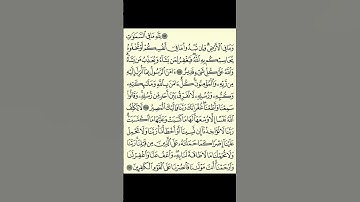 لِّلَّهِ مَا فِي ٱلسَّمَٰوَٰتِ
وَمَا فِي ٱلْأَرْضِ وَإِن تُبْدُوا۟ مَا فِيٓ أَنفُسِكُمْ أَوْ تُخْفُوهُ
يُحَاسِبْكُم بِهِ ٱللَّهُ فَيَغْفِرُ لِمَن يَشَآءُ وَيُعَذِّبُ مَن يَشَآءُ
وَٱللَّهُ عَلَىٰ كُلِّ شَيْءٍ قَدِيرٌ ۝ ءَامَنَ ٱلرَّسُولُ بِمَآ أُنزِلَ إِلَيْهِ
مِن رَّبِّهِۦ وَٱلْمُؤْمِنُونَ كُلٌّ ءَامَنَ بِٱللَّهِ وَمَلَٰٓئِكَتِهِۦ
وَكُتُبِهِۦ وَرُسُلِهِۦ لَا نُفَرِّقُ بَيْنَ أَحَدٍ مِّن رُّسُلِهِۦ وَقَالُوا۟
سَمِعْنَا وَأَطَعْنَا غُفْرَانَكَ رَبَّنَا وَإِلَيْكَ ٱلْمَصِيرُ ۝ لَا يُكَلِّفُ
ٱللَّهُ نَفْسًا إِلَّا وُسْعَهَا لَهَا مَا كَسَبَتْ وَعَلَيْهَا مَا ٱكْتَسَبَتْ
رَبَّنَا لَا تُؤَاخِذْنَآ إِن نَّسِينَآ أَوْ أَخْطَأْنَا رَبَّنَا وَلَا تَحْمِلْ
عَلَيْنَآ إِصْرًا كَمَا حَمَلْتَهُۥ عَلَى ٱلَّذِينَ مِن قَبْلِنَا رَبَّنَا
وَلَا تُحَمِّلْنَا مَا لَا طَاقَةَ لَنَا بِهِۦ وَٱعْفُ عَنَّا وَٱغْفِرْ لَنَا
وَٱرْحَمْنَآ أَنتَ مَوْلَىٰنَا فَٱنصُرْنَا عَلَى ٱلْقَوْمِ ٱلْكَٰفِرِينَ ۝